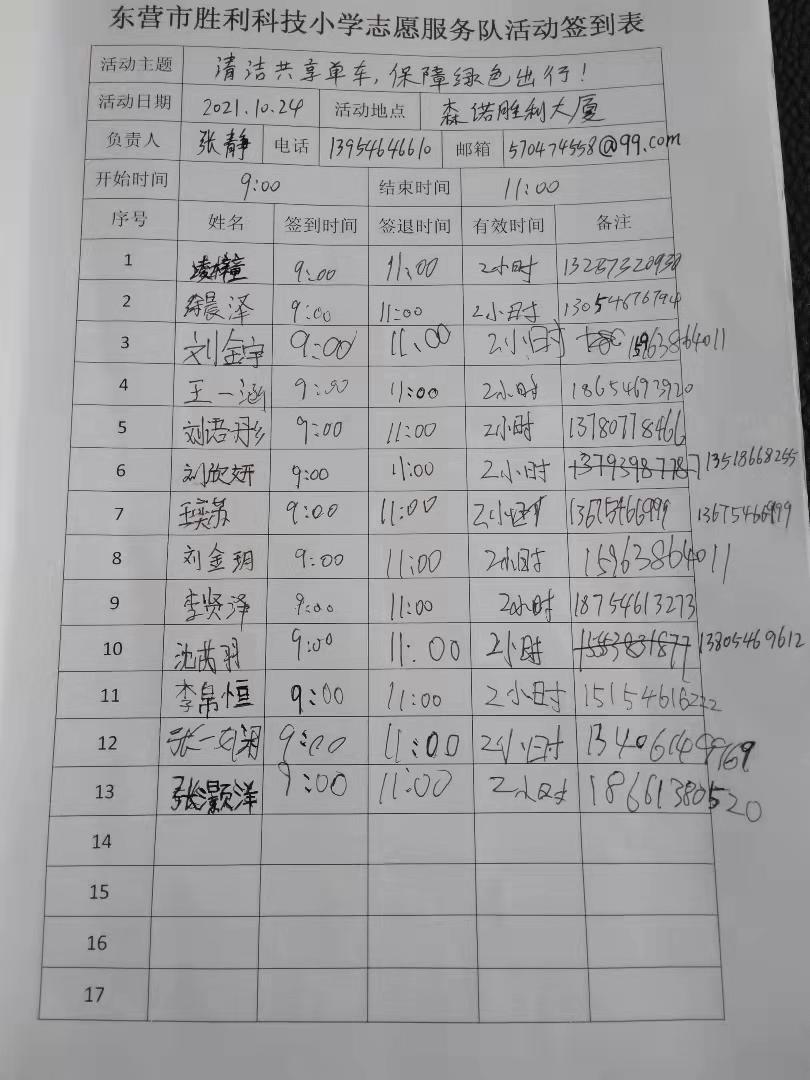 东营市胜利科技小学志愿服务队活动签到表
活动主题 清洁共享单车,保障绿色出行!
活动日期 2021.10.24 活动地点 森诺胜利大厦
负责人 张静 电话 13954646610 邮箱 570474558@99.com
开始时间 9:00 结束时间 11:00
序号 姓名 签到时间 签退时间 有效时间 备注
1 9:00 11:00 2小时 13287320930
2 徐晨泽 9:00 11:00 2小时 13054676794
3 刘金宇 9:00 11:00 2小时 15963864011
4 王一涵 9:00 11:00 2小时 18654693920
5 刘语彤 9:00 11:00 2小时 13780778466
6 刘欣妍 9:00 11:00 2小时 13793987787 13518668255
7 9:00 11:00 2小时 13675466999 13675466999
8 刘金玥 9:00 11:00 2小时 15963864011
9 李贤泽 9:00 11:00 2小时 18754613273
10 沈芮羽 9:00 11:00 2小时 13805469612
11 李帛恒 9:00 11:00 2小时 15154616222
12 9:00 11:00 2小时 13406149969
13 张灏洋 9:00 11:00 2小时 18661380520
14
15
16
17